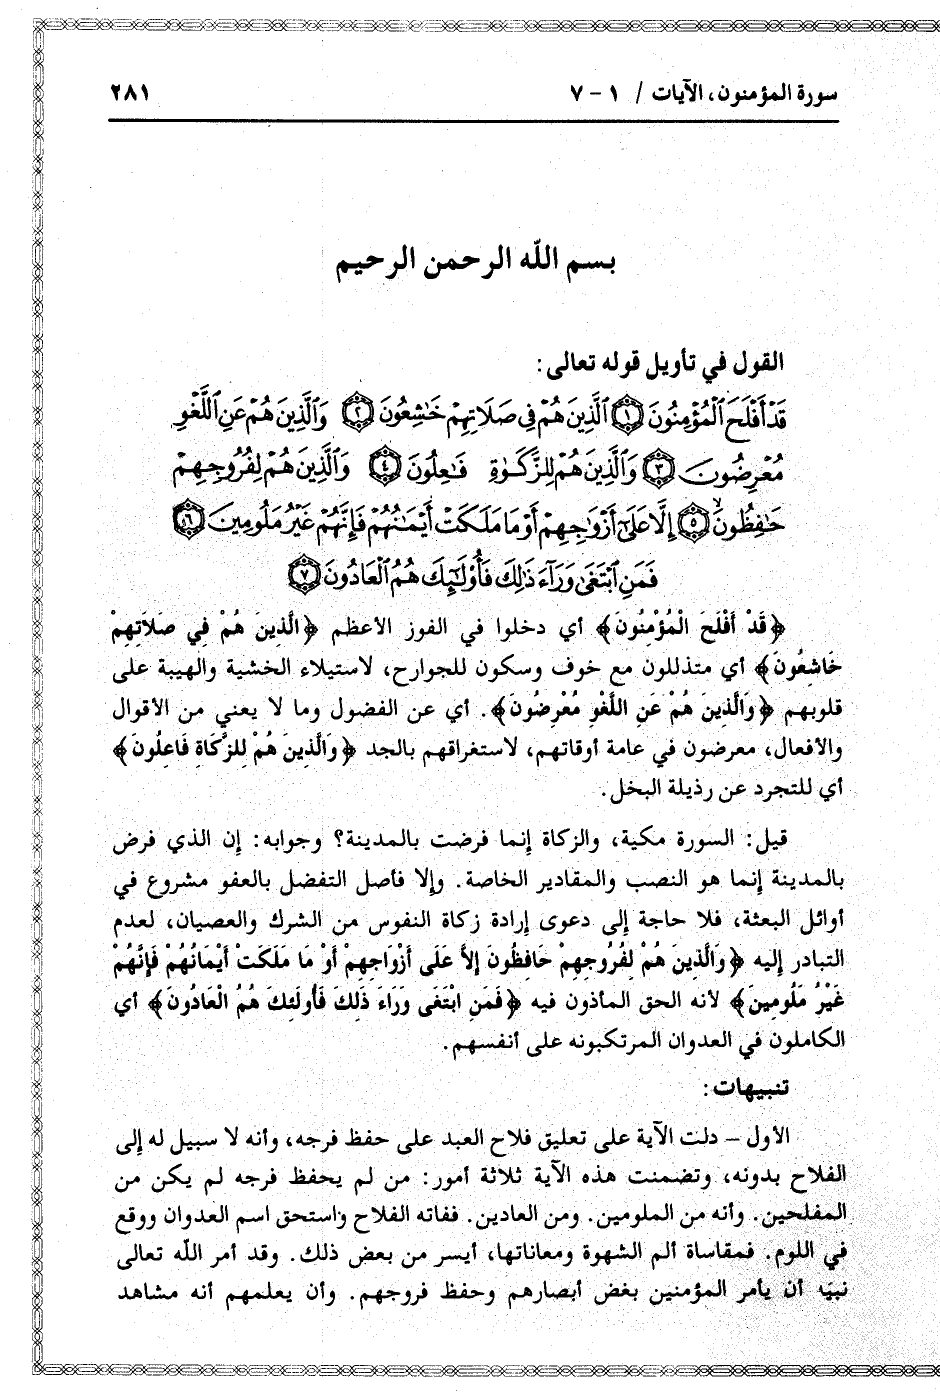 سورة المؤمنون، الآيات / ١ - ٧
٢٨١
بسم اللّه الرحمن الرحيم
القول في تأويل قوله تعالى:
قَدْ أَفْلَحَ ٱلْمُؤْمِنُونَ ١ ٱلَّذِينَ هُمْ فِى صَلَاتِهِمْ خَٰشِعُونَ ٢ وَٱلَّذِينَ هُمْ عَنِ ٱللَّغْوِ
مُعْرِضُونَ ٣ وَٱلَّذِينَ هُمْ لِلزَّكَوٰةِ فَٰعِلُونَ ٤ وَٱلَّذِينَ هُمْ لِفُرُوجِهِمْ
حَٰفِظُونَ ٥ إِلَّا عَلَىٰٓ أَزْوَٰجِهِمْ أَوْ مَا مَلَكَتْ أَيْمَٰنُهُمْ فَإِنَّهُمْ غَيْرُ مَلُومِينَ ٦
فَمَنِ ٱبْتَغَىٰ وَرَآءَ ذَٰلِكَ فَأُو۟لَٰٓئِكَ هُمُ ٱلْعَادُونَ ٧
﴿قَدْ أَفْلَحَ الْمُؤْمِنُونَ﴾ أي دخلوا في الفوز الأعظم ﴿الَّذِينَ هُمْ فِي صَلاَتِهِمْ
خَاشِعُونَ﴾ أي متذللون مع خوف وسكون للجوارح، لاستيلاء الخشية والهيبة على
قلوبهم ﴿وَالَّذِينَ هُمْ عَنِ اللَّغْوِ مُعْرِضُونَ﴾. أي عن الفضول وما لا يعني من الأقوال
والأفعال، معرضون في عامة أوقاتهم، لاستغراقهم بالجد ﴿وَالَّذِينَ هُمْ لِلزَّكَاةِ فَاعِلُونَ﴾
أي للتجرد عن رذيلة البخل.
قيل: السورة مكية، والزكاة إنما فرضت بالمدينة؟ وجوابه: إن الذي فرض
بالمدينة إنما هو النصب والمقادير الخاصة. وإلا فأصل التفضل بالعفو مشروع في
أوائل البعثة، فلا حاجة إلى دعوى إرادة زكاة النفوس من الشرك والعصيان، لعدم
التبادر إليه ﴿وَالَّذِينَ هُمْ لِفُرُوجِهِمْ حَافِظُونَ إلاَّ عَلَى أَزْوَاجِهِمْ أَوْ مَا مَلَكَتْ أَيْمَانُهُمْ فَإِنَّهُمْ
غَيْرُ مَلُومِينَ﴾ لأنه الحق المأذون فيه ﴿فَمَنِ ابْتَغَى وَرَاءَ ذَلِكَ فَأُولَئِكَ هُمُ الْعَادُونَ﴾ أي
الكاملون في العدوان المرتكبونه على أنفسهم.
تنبيهات:
الأول – دلت الآية على تعليق فلاح العبد على حفظ فرجه، وأنه لا سبيل له إلى
الفلاح بدونه، وتضمنت هذه الآية ثلاثة أمور: من لم يحفظ فرجه لم يكن من
المفلحين. وأنه من الملومين. ومن العادين. ففاته الفلاح واستحق اسم العدوان ووقع
في اللوم. فمقاساة ألم الشهوة ومعاناتها، أيسر من بعض ذلك. وقد أمر اللّه تعالى
نبيَه أن يأمر المؤمنين بغض أبصارهم وحفظ فروجهم. وأن يعلمهم أنه مشاهد